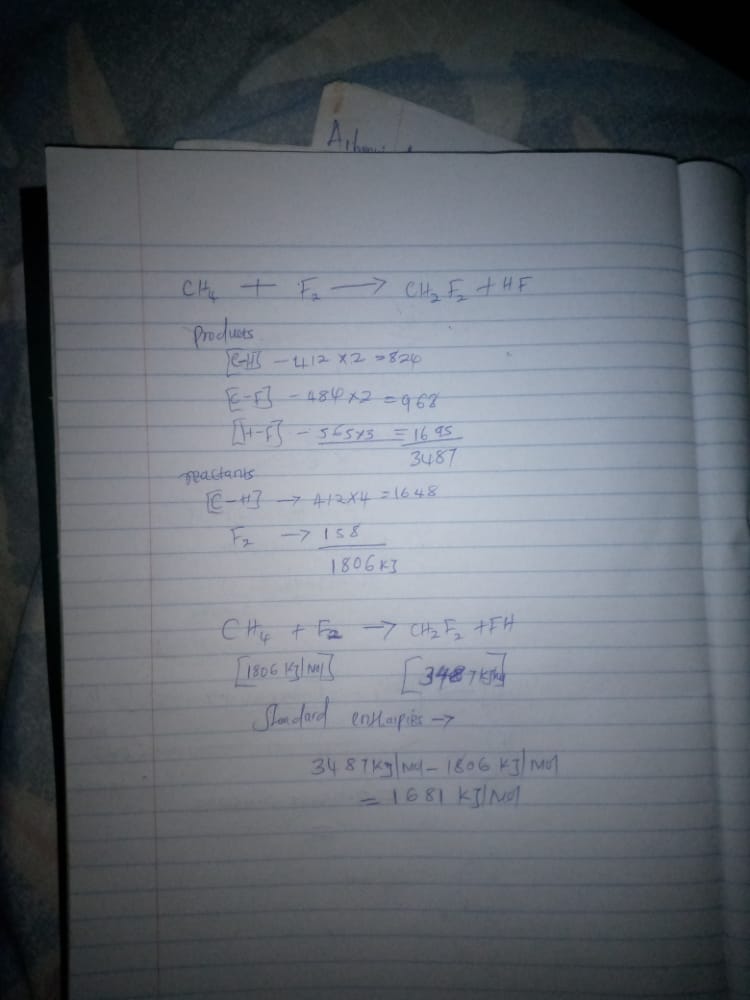 CH₄ + F₂ → CH₂F₂ + HF
Products
[C-H] - 412 × 2 = 824
[C-F] - 484 × 2 = 968
[H-F] - 565×3 = 1695
3487
reactants
[C-H] → 412×4 = 1648
F₂ → 158
1806 KJ
CH₄ + F₂ → CH₂F₂ + FH
[1806 KJ|Mol] [3487 KJ|Mol]
Standard enthalpies →
3487 KJ|Mol - 1806 KJ|Mol
= 1681 KJ|Mol